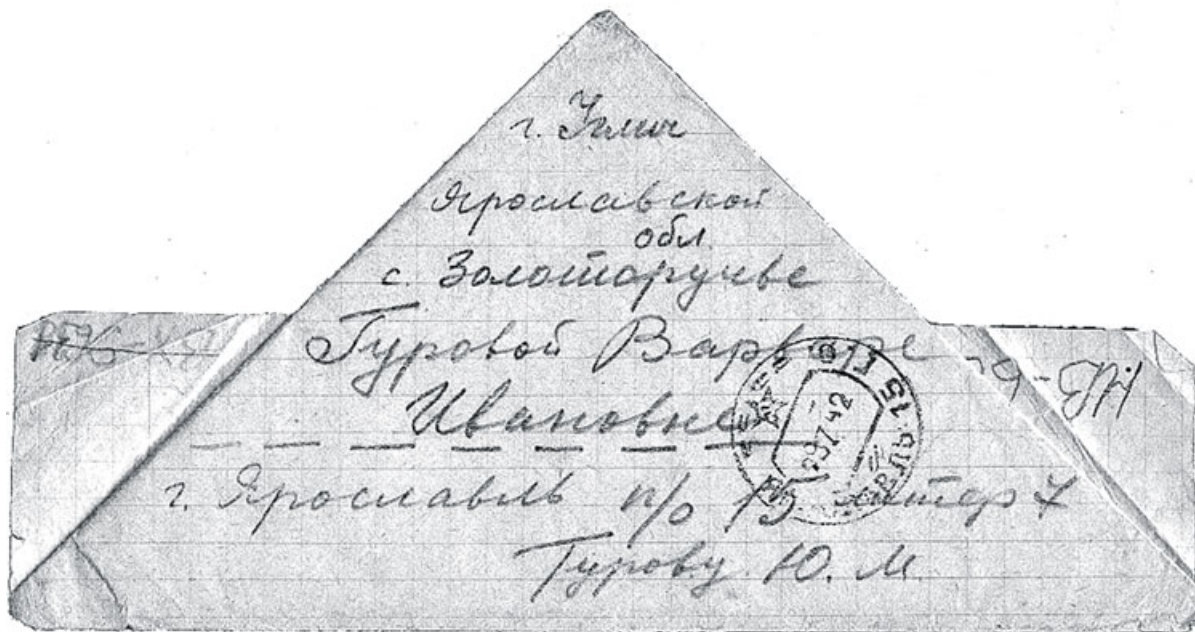 г. Углич
Ярославской
обл.
с. Золоторучье
Туровой Варваре
Ивановне
г. Ярославль п/о 15 литер 7
Турову Ю. М.
29 7 42